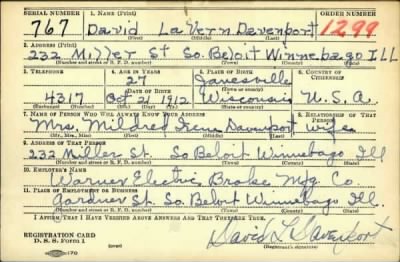 SERIAL NUMBER 1. NAME (Print) ORDER NUMBER
767 David LaVern Davenport 1299
(First) (Middle) (Last)
2. ADDRESS (Print)
232 Miller St So. Beloit Winnebago ILL
(Number and street or R. F. D. number) (Town) (County) (State)
3. TELEPHONE 4. AGE IN YEARS 5. PLACE OF BIRTH 6. COUNTRY OF CITIZENSHIP
27 Janesville
DATE OF BIRTH (Town or county)
4317 Oct 21 1912 Wisconsin U.S.A.
(Exchange) (Number) (Mo.) (Day) (Yr.) (State or country)
7. NAME OF PERSON WHO WILL ALWAYS KNOW YOUR ADDRESS 8. RELATIONSHIP OF THAT PERSON
Mrs. Mildred Irene Davenport wife
(Mr., Mrs., Miss) (First) (Middle) (Last)
9. ADDRESS OF THAT PERSON
232 Miller St. So Beloit Winnebago Ill
(Number and street or R. F. D. number) (Town) (County) (State)
10. EMPLOYER'S NAME
Warner Electric Brake Mfg Co.
11. PLACE OF EMPLOYMENT OR BUSINESS
Gardner St. So. Beloit Winnebago Ill.
(Number and street or R. F. D. number) (Town) (County) (State)
I AFFIRM THAT I HAVE VERIFIED ABOVE ANSWERS AND THAT THEY ARE TRUE.
REGISTRATION CARD
D. S. S. Form 1 David L Davenport
(Registrant's signature)